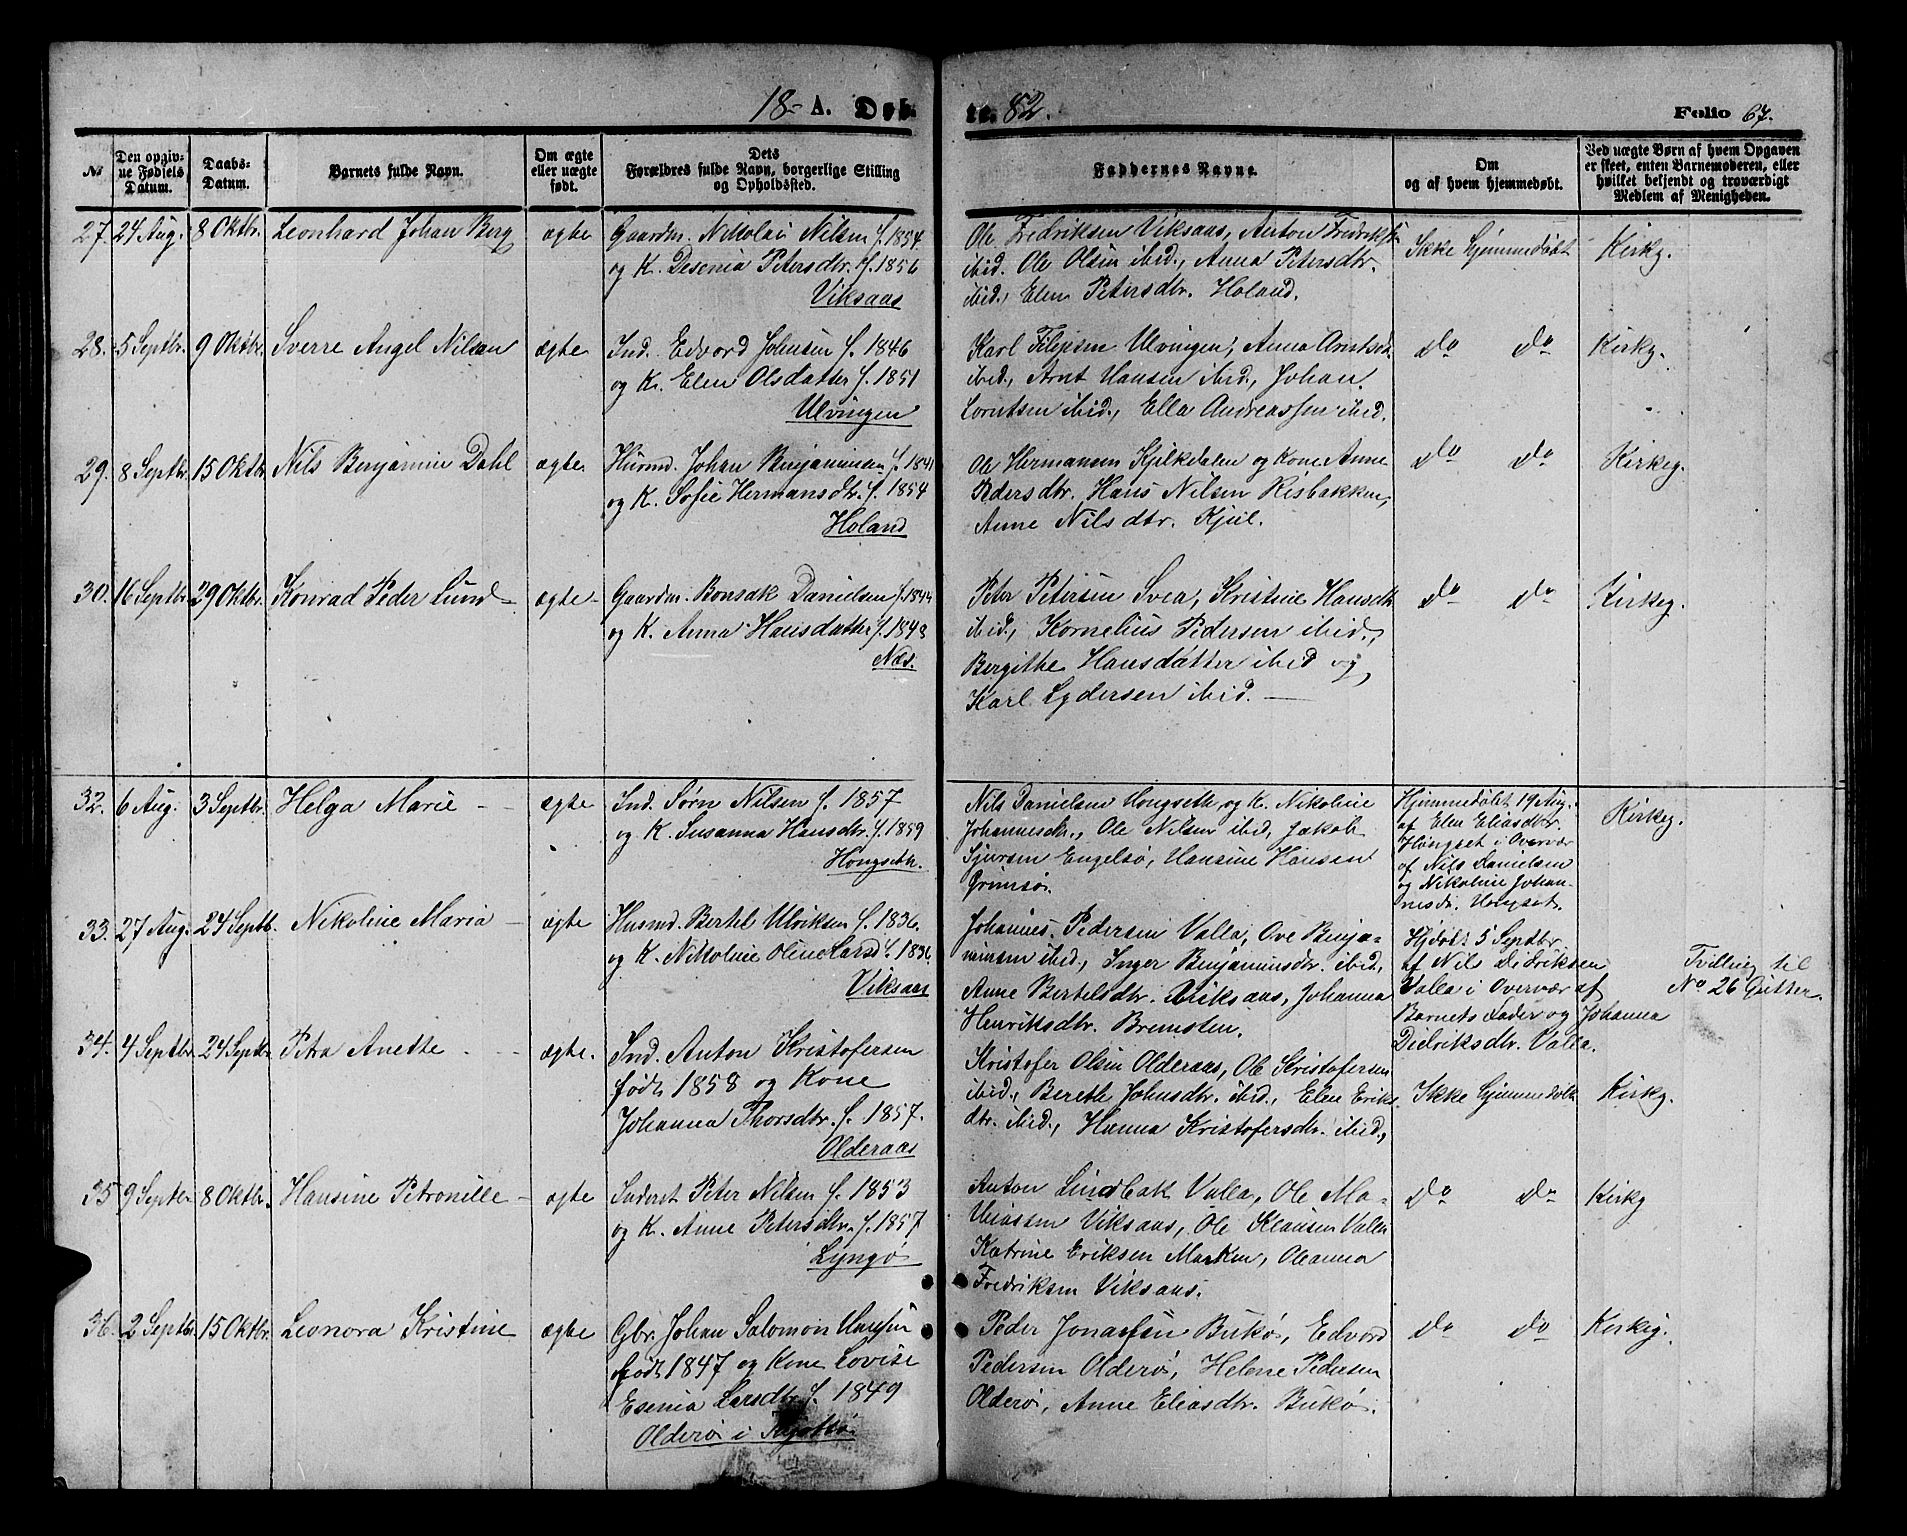 18- A. Døb-
te. 82.
Folio 67.
№
Den opgiv-
ne Fødsels
Datum.
Daabs-
Datum.
Barnets fulde Navn.
Om ægte
eller uægte
født.
Dets
Forældres fulde Navn, borgerlige Stilling
og Opholdssted.
Faddernes Navne.
Om
og af hvem hjemmedøbt.
Ved uægte Børn af hvem Opgaven
er skeet, enten Barnemoderen, eller
hvilket bekjendt og troværdigt
Medlem af Menigheden.
27. 24 Aug. 8 Oktbr. Leonhard Johan Berg ægte
Gaardm. Nikolai Nilsen f. 1854
og K. Desenia Petersdtr. f. 1856
Viksaas
Ole Fredriksen Viksaas, Anton Fredriks
ibid. Ole Olsen ibid., Anna Petersdtr.
ibid., Elen Petersdtr. Holand.
Ikke hjemmedøbt
Kirkg.
28. 5 Septbr. 9 Oktbr. Sverre Angel Nilsen ægte
Ind. Edvard Johnsen f. 1846
og K. Elen Olsdatter f. 1851
Ulvingen
Karl Filipsen Ulvingen, Anna Arntsd
ibid., Arnt Hansen ibid., Johan
Lorntsen ibid., Ella Andreassen ibid.
do do
Kirkg.
29. 8 Septbr. 15 Oktbr. Nils Benjamin Dahl ægte.
Husmd. Johan Benjaminsen f. 1841
og K. Sofie Hermansdtr. f. 1854
Holand
Ole Hermansen Kjilkedalen og Kone Anne
Pedersdtr. Hans Nilsen Risbakken,
Anne Nilsdtr. Kjul.
do do
Kirkeg.
30. 16 Septbr. 29 Oktbr. Konrad Peder Lund ægte
Gaardm. Bonsak Danielsen f. 1844
og K. Anna Hansdatter f. 1848
Næs.
Peter Petersen Svea, Kristine Hansdtr
ibid., Kornelius Pedersen ibid.,
Bergithe Hansdatter ibid og
Karl Lydersen ibid. —
do do
Kirkeg.
32. 6 Aug. 3 Septbr. Helga Marie - - ægte
Ind. Sørn Nilsen f. 1857
og K. Susanna Hansdtr. f. 1859
Hongseth.
Nils Danielsen Hongseth og K. Nikoline
Johannesdr., Ole Nilsen ibid, Jakob
Sjursen Engelsø, Hansine Hansen
Grimsø.
Hjemmedøbt 19 Aug.
af Elen Eliasdtr.
Hongset i Overvær
af Nils Danielsen
og Nikoline Johan-
nesdr. Hongset.
Kirkg.
33. 27 Aug. 24 Septb. Nikoline Maria - ægte
Husmd. Bertel Ulriksen f. 1836.
og K. Nikoline Oline Larsd f. 1836.
Viksaas
Johannes Pedersen Valla, Ove Benja-
minsen ibid., Inger Benjaminsdtr. ibid,
Anne Bertelsdtr. Viksaas, Johanna
Henriksdtr. Bremsten.
Hjdøbt 5 Septbr
af Nils Didriksen
Valla i Overvær af
Barnets Fader og Johanna
Didriksdtr. Valla.
Tvilling til
No 26 Gutter.
34. 4 Septbr. 24 Septbr. Petra Anette - - ægte.
Ind. Anton Kristofersen
født 1858 og Kone
Johanna Thorsdtr. f. 1857.
Olderaas
Kristofer Olsen Olderaas, Ole Kristofersen
ibid., Berethe Johnsdtr. ibid., Elen Eriks
dtr. ibid., Hanna Kristofersdtr. ibid.,
Ikke hjemmedøbt
Kirkg.
35 9 Septbr 8 Oktbr. Hansine Petronille - ægte
Inderst Peter Nilsen f. 1853
og K. Anne Petersdtr. f. 1857
Lyngø
Anton Lindbak Valla, Ole Ma-
thiassen Viksaas, Ole Klausen Valla
Katrine Eriksen Marken, Oleanna
Fredriksen Viksaas.
do do
Kirkg
36. 2 Septbr. 15 Oktbr. Leonora Kristine ægte
Gbr. Johan Salomon Hansen
født 1847 og Kone Lovise
Esenia Larsdtr. f. 1849
Olderø i
Peder Jonassen Bukø, Edvard
Pedersen Olderø, Helene Pedersen
Olderø, Anne Eliasdtr. Bukø.
do do
Kirkeg.